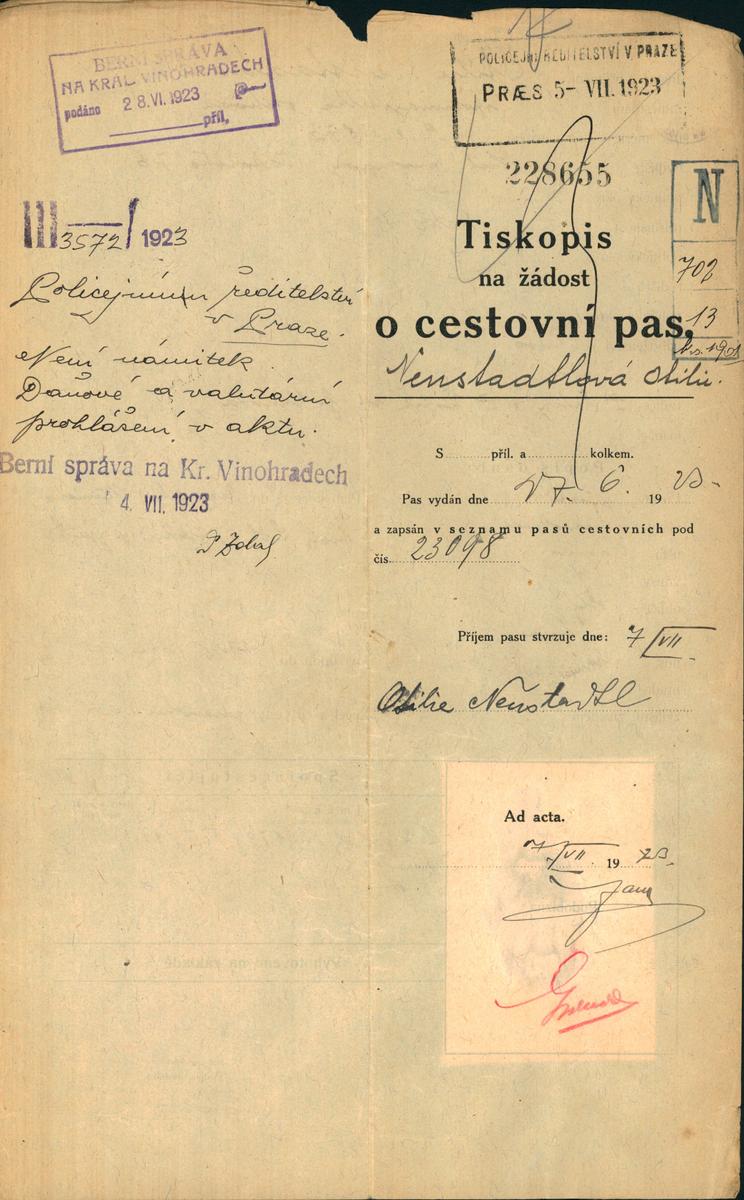 BERNÍ SPRÁVA
NA KRÁL. VINOHRADECH
podáno 28.VI.1923
příl,
III 3572/1923
Policejnímu ředitelství
v Praze.
Není námitek.
Daňové a valutární
prohlášení v aktu.
Berní správa na Kr. Vinohradech
4. VII. 1923
POLICEJNÍ ŘEDITELSTVÍ V PRAZE
PRÆS 5- VII. 1923
228655
N
702
13
Tiskopis
na žádost
o cestovní pas,
Neustadtlová Otilie.
S příl. a kolkem.
Pas vydán dne 27. 6. 19 23.
a zapsán v seznamu pasů cestovních pod
čís. 23098
Příjem pasu stvrzuje dne: 7/VII.
Otilie Neustadtl
Ad acta.
7/VII. 19 23.